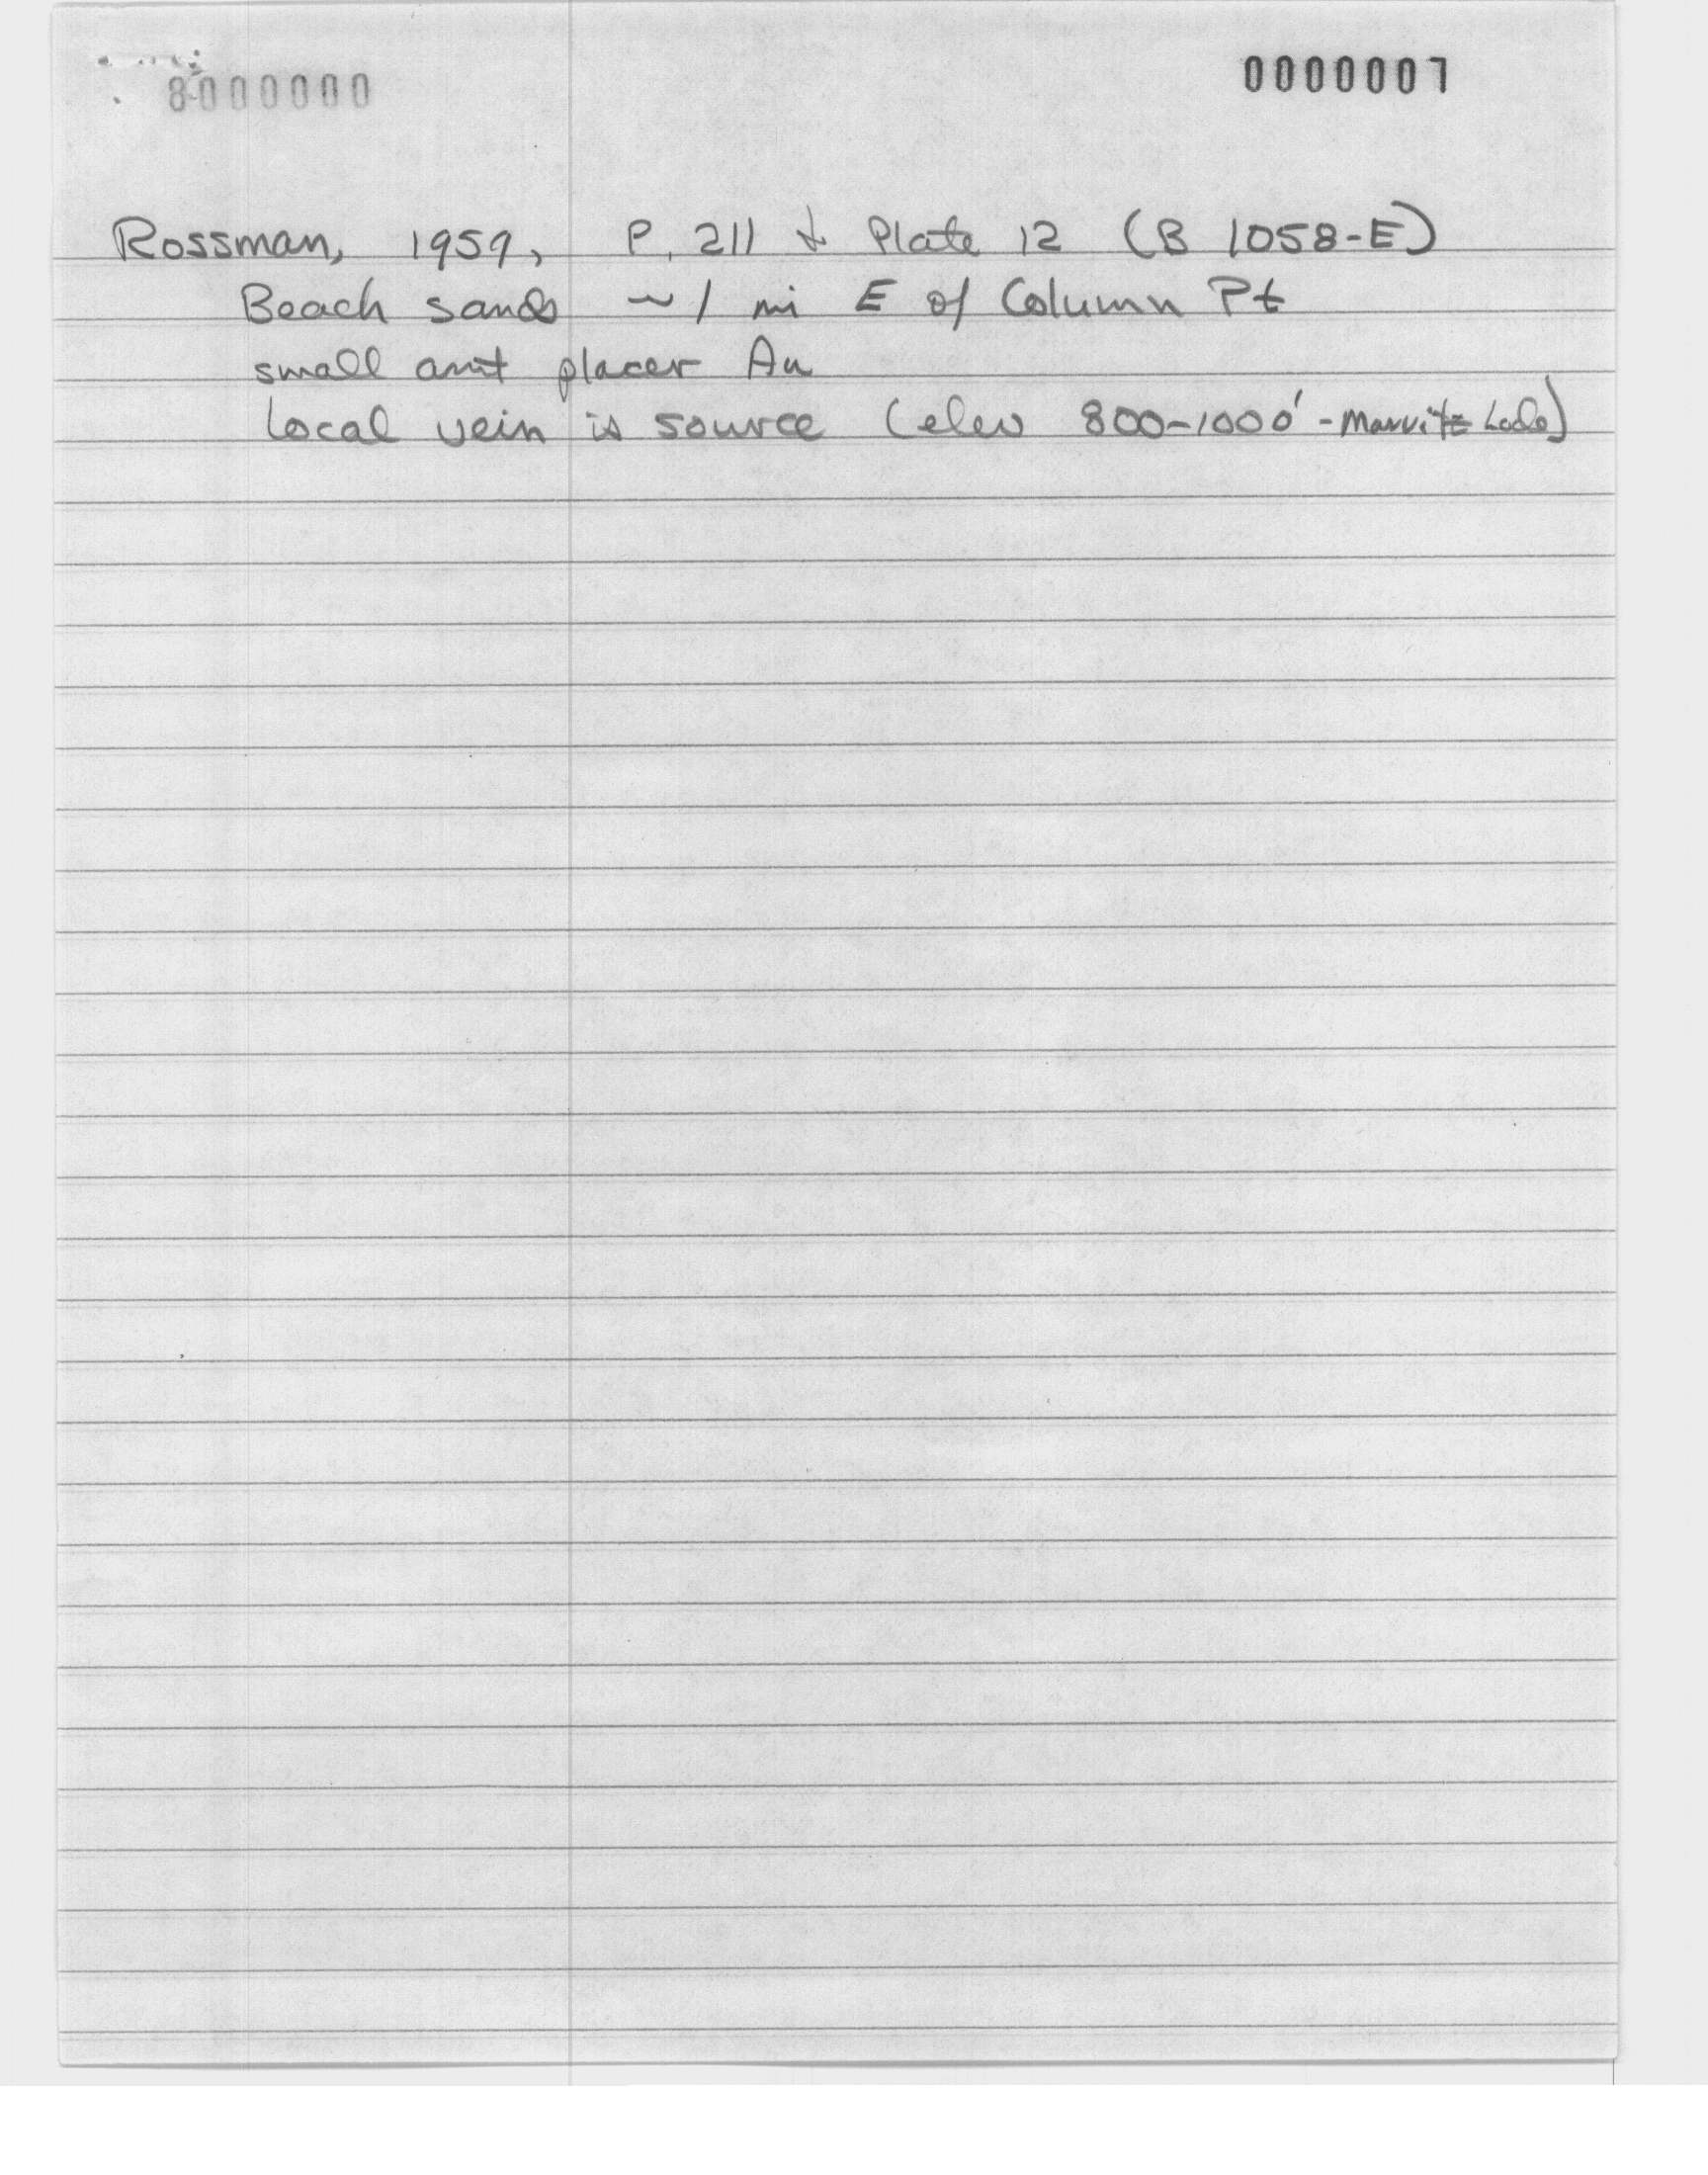 8000000 0000007
Rossman, 1959, P. 211 & Plate 12 (B 1058-E)
Beach sands ~1 mi E of Column Pt
small amt placer Au
Local vein is source (elev 800-1000' - Marvitz Lode)